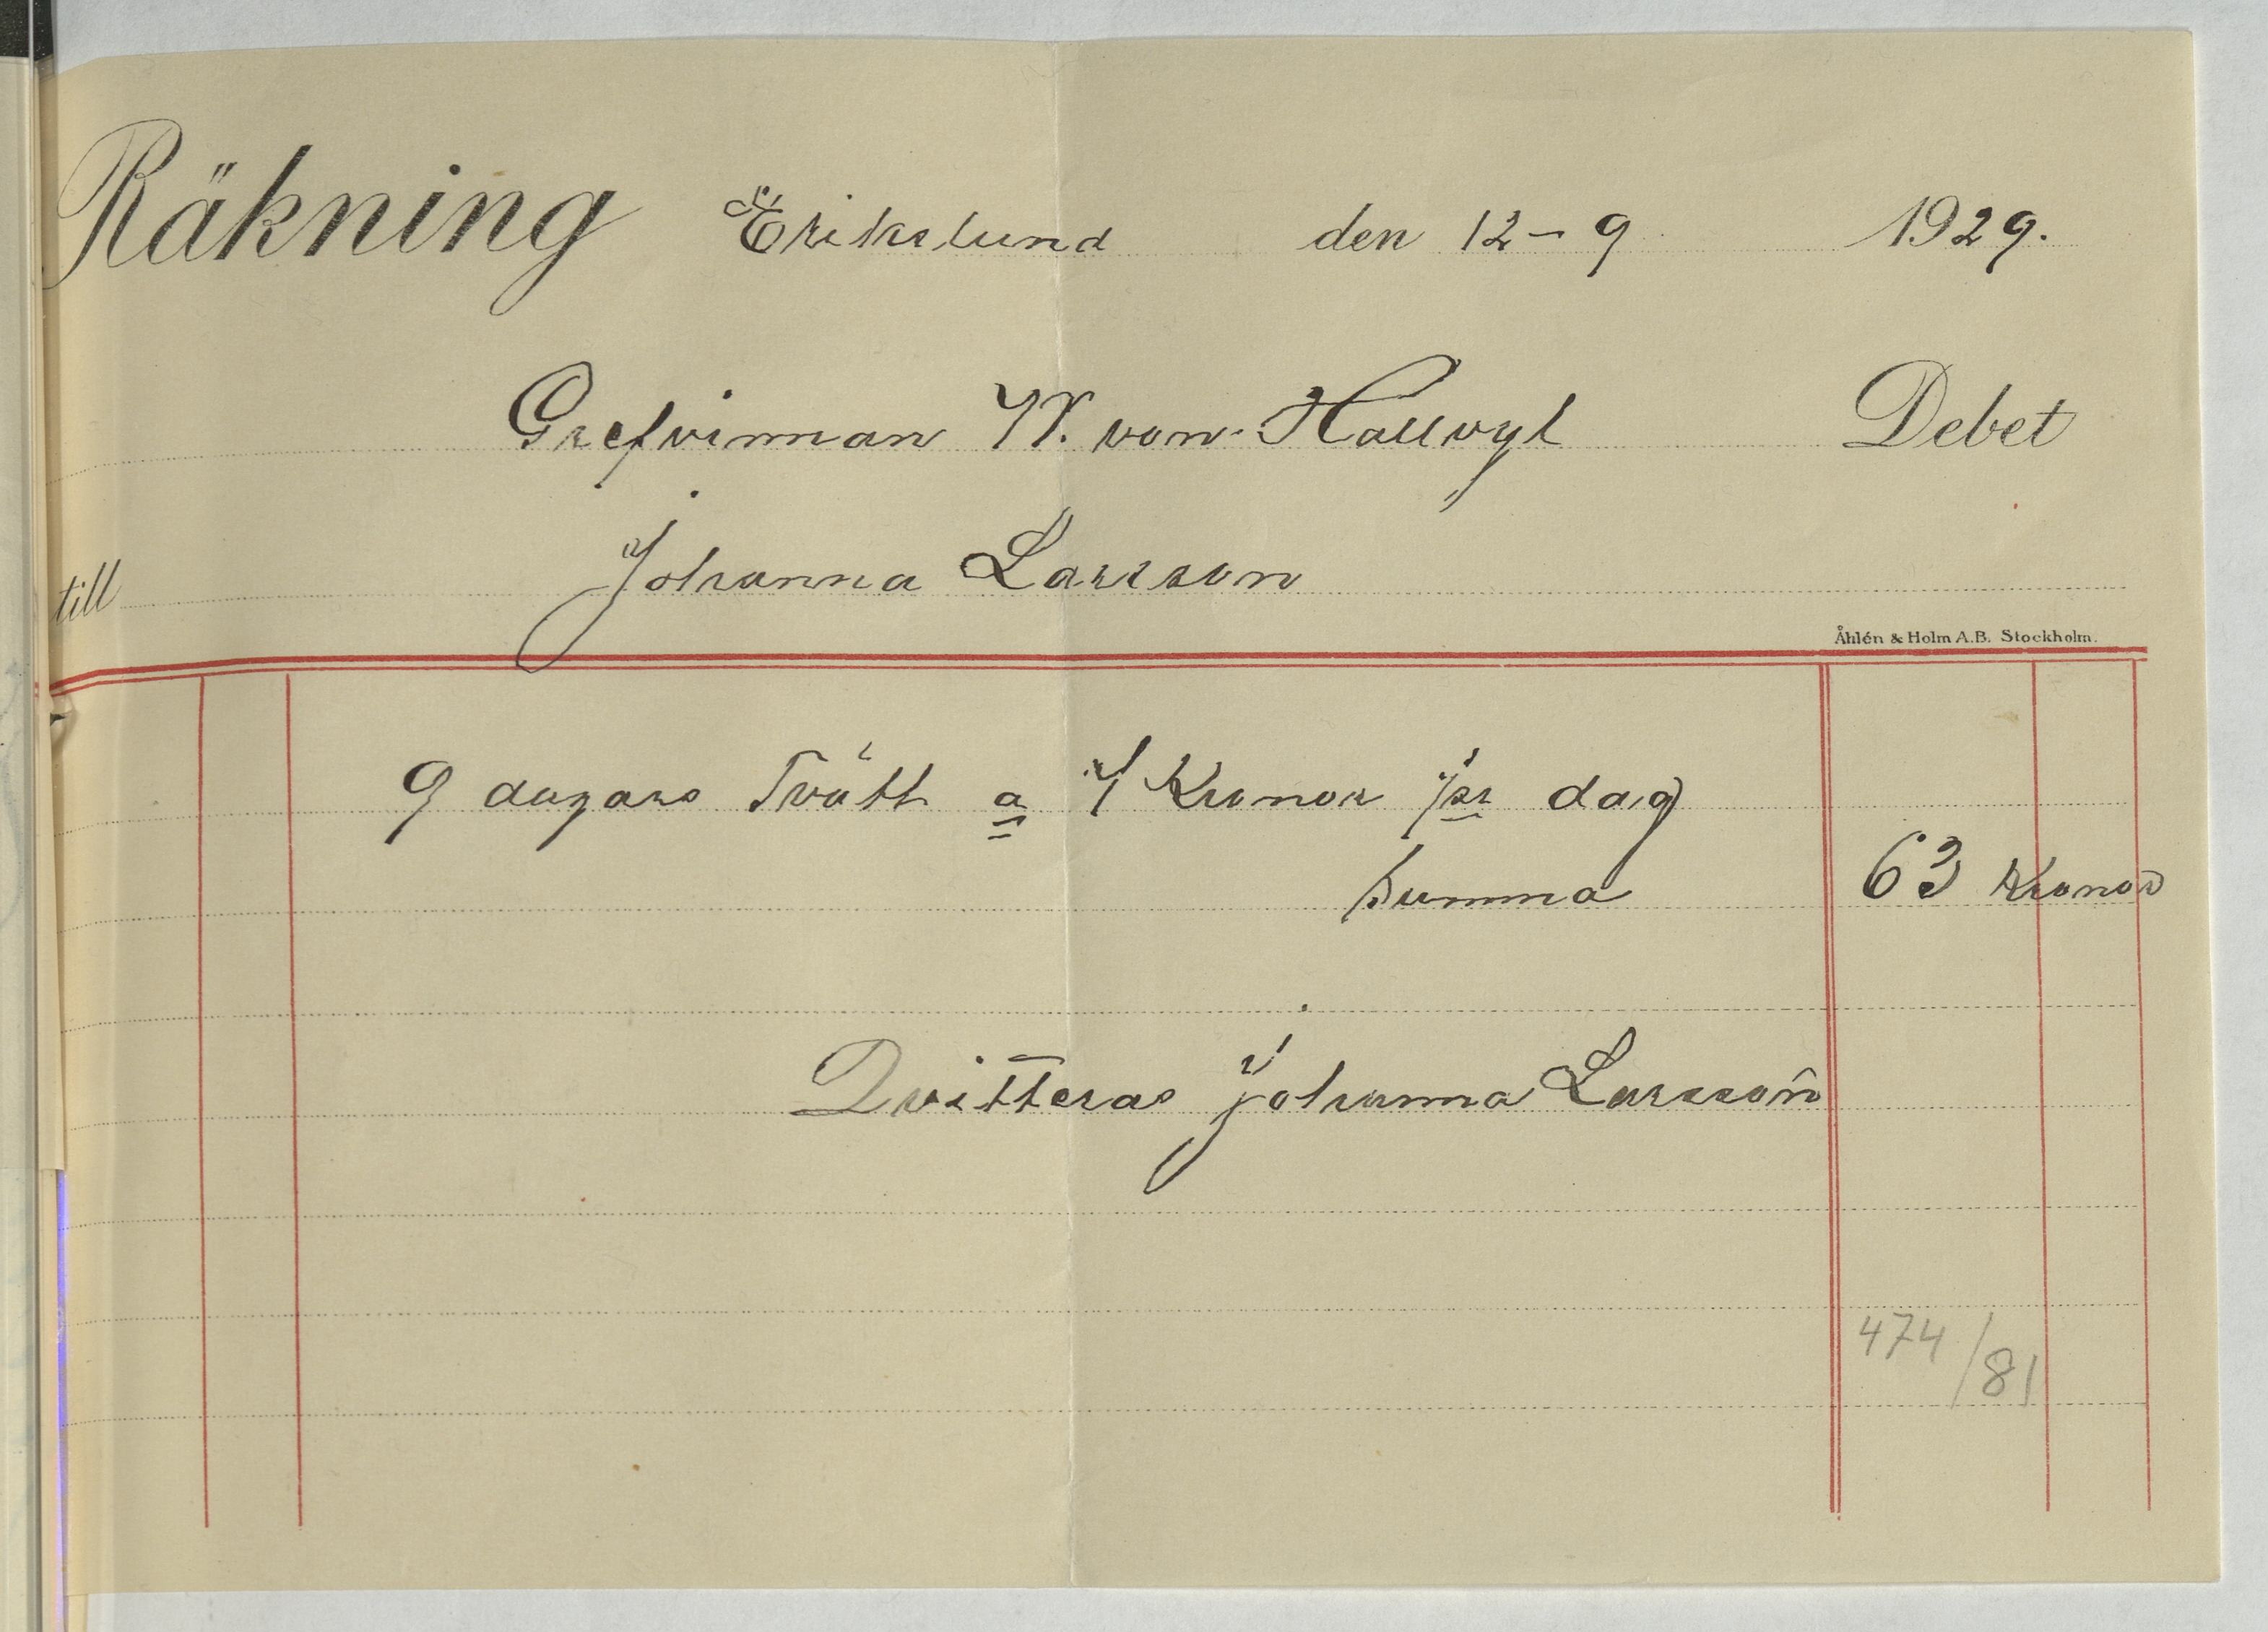 Räkning Erikslund den 12-9 1929.
Grefvinnan W. von Hallwyl Debet
till Johanna Larsson
Åhlén & Holm A.B. Stockholm.
9 dagars Tvätt a 7 Kronor pr dag
Summa 63 Kronor
Qvitteras Johanna Larsson
474/81